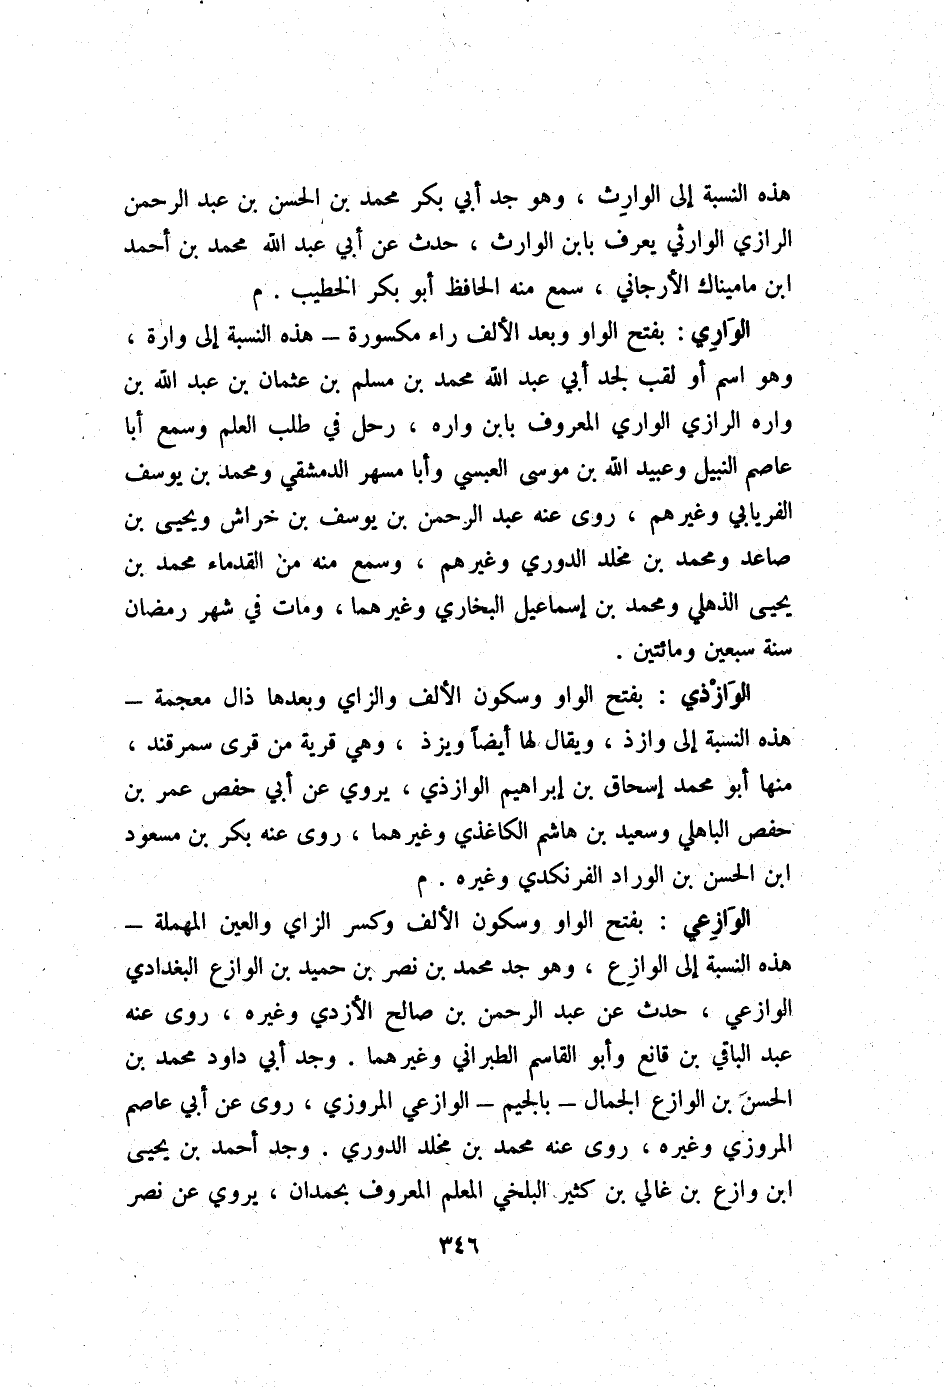 هذه النسبة إلى الوارِث ، وهو جد أبي بكر محمد بن الحسن بن عبد الرحمن
الرازي الوارثي يعرف بابن الوارث ، حدث عن أبي عبد الله محمد بن أحمد
ابن ماميناك الأرجاني ، سمع منه الحافظ أبو بكر الخطيب . م
الوَارِي : بفتح الواو وبعد الألف راء مكسورة – هذه النسبة إلى وارة ،
وهو اسم أو لقب لجد أبي عبد الله محمد بن مسلم بن عثمان بن عبد الله بن
واره الرازي الواري المعروف بابن واره ، رحل في طلب العلم وسمع أبا
عاصم النبيل وعبيد الله بن موسى العبسي وأبا مسهر الدمشقي ومحمد بن يوسف
الفريابي وغيرهم ، روى عنه عبد الرحمن بن يوسف بن خراش ويحيى بن
صاعد ومحمد بن مخلد الدوري وغيرهم ، وسمع منه من القدماء محمد بن
يحيى الذهلي ومحمد بن إسماعيل البخاري وغيرهما ، ومات في شهر رمضان
سنة سبعين ومائتين .
الوَازْذي : بفتح الواو وسكون الألف والزاي وبعدها ذال معجمة –
هذه النسبة إلى وازذ ، ويقال لها أيضاً ويزذ ، وهي قرية من قرى سمرقند ،
منها أبو محمد إسحاق بن إبراهيم الوازذي ، يروي عن أبي حفص عمر بن
حفص الباهلي وسعيد بن هاشم الكاغذي وغيرهما ، روى عنه بكر بن مسعود
ابن الحسن بن الوراد الفرنكدي وغيره . م
الوَازِعي : بفتح الواو وسكون الألف وكسر الزاي والعين المهملة –
هذه النسبة إلى الوازِع ، وهو جد محمد بن نصر بن حميد بن الوازع البغدادي
الوازعي ، حدث عن عبد الرحمن بن صالح الأزدي وغيره ، روى عنه
عبد الباقي بن قانع وأبو القاسم الطبراني وغيرهما . وجد أبي داود محمد بن
الحسن بن الوازع الجمال – بالجيم – الوازعي المروزي ، روى عن أبي عاصم
المروزي وغيره ، روى عنه محمد بن مخلد الدوري . وجد أحمد بن يحيى
ابن وازع بن غالي بن كثير البلخي المعلم المعروف بحمدان ، يروي عن نصر
٣٤٦